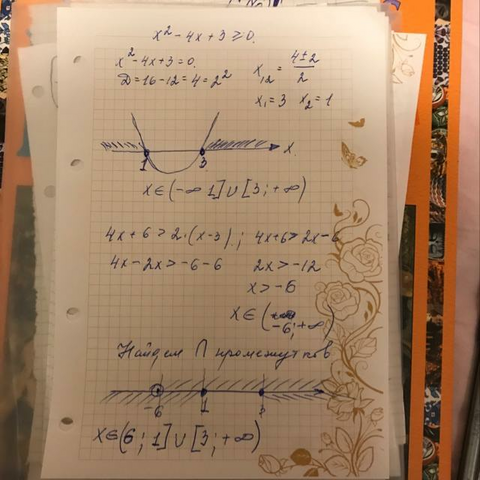 x² - 4x + 3 ≥ 0.
x² - 4x + 3 = 0.
D = 16 - 12 = 4 = 2²
x₁,₂ = (4 ± 2)/2
x₁ = 3 x₂ = 1
1 3 x
x ∈ (-∞ 1] ∪ [3; +∞)
4x + 6 > 2·(x - 3); 4x + 6 > 2x - 6
4x - 2x > -6 - 6 2x > -12
x > -6
x ∈ (-6; +∞)
Найдем ∩ промежутков
-6 1 3
x ∈ (6; 1] ∪ [3; +∞)